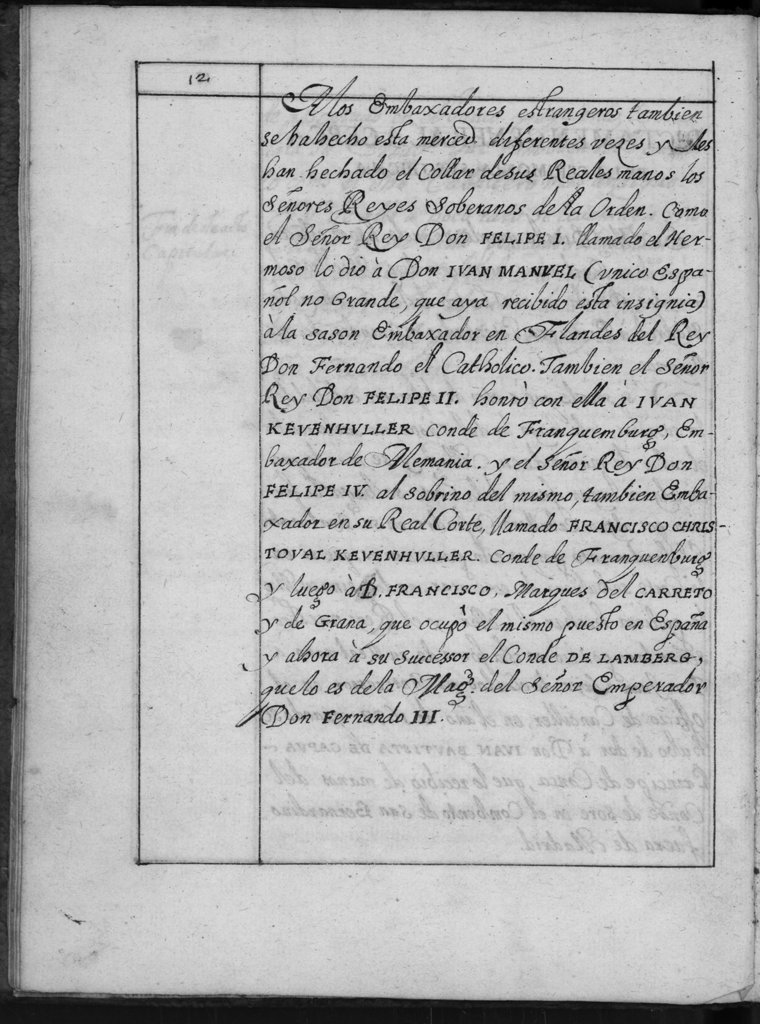 12
A los Embaxadores estrangeros tambien
se ha hecho esta merced diferentes vezes y les
han hechado el Collar de sus Reales manos los
Señores Reyes Soberanos desta Orden. Como
el Señor Rey Don FELIPE I. llamado el Her-
moso lo dio à Don IVAN MANVEL (vnico Espa-
ñol no Grande, que aya recibido esta insignia)
à la sason Embaxador en Flandes del Rey
Don Fernando el Catholico. Tambien el Señor
Rey Don FELIPE II. honrò con ella à IVAN
KEVENHVLLER Conde de Franquemburg, Em-
baxador de Alemania. y el Señor Rey Don
FELIPE IV. al sobrino del mismo, tambien Emba-
xador en su Real Corte, llamado FRANCISCO CHRIS-
TOVAL KEVENHVLLER. Conde de Franquenburg
y luego à D. FRANCISCO, Marques del CARRETO
y de Grana, que ocupò el mismo puesto en España
y ahora à su Successor el Conde DE LAMBERG,
que lo es de la Mag.d del Señor Emperador
Don Fernando III.